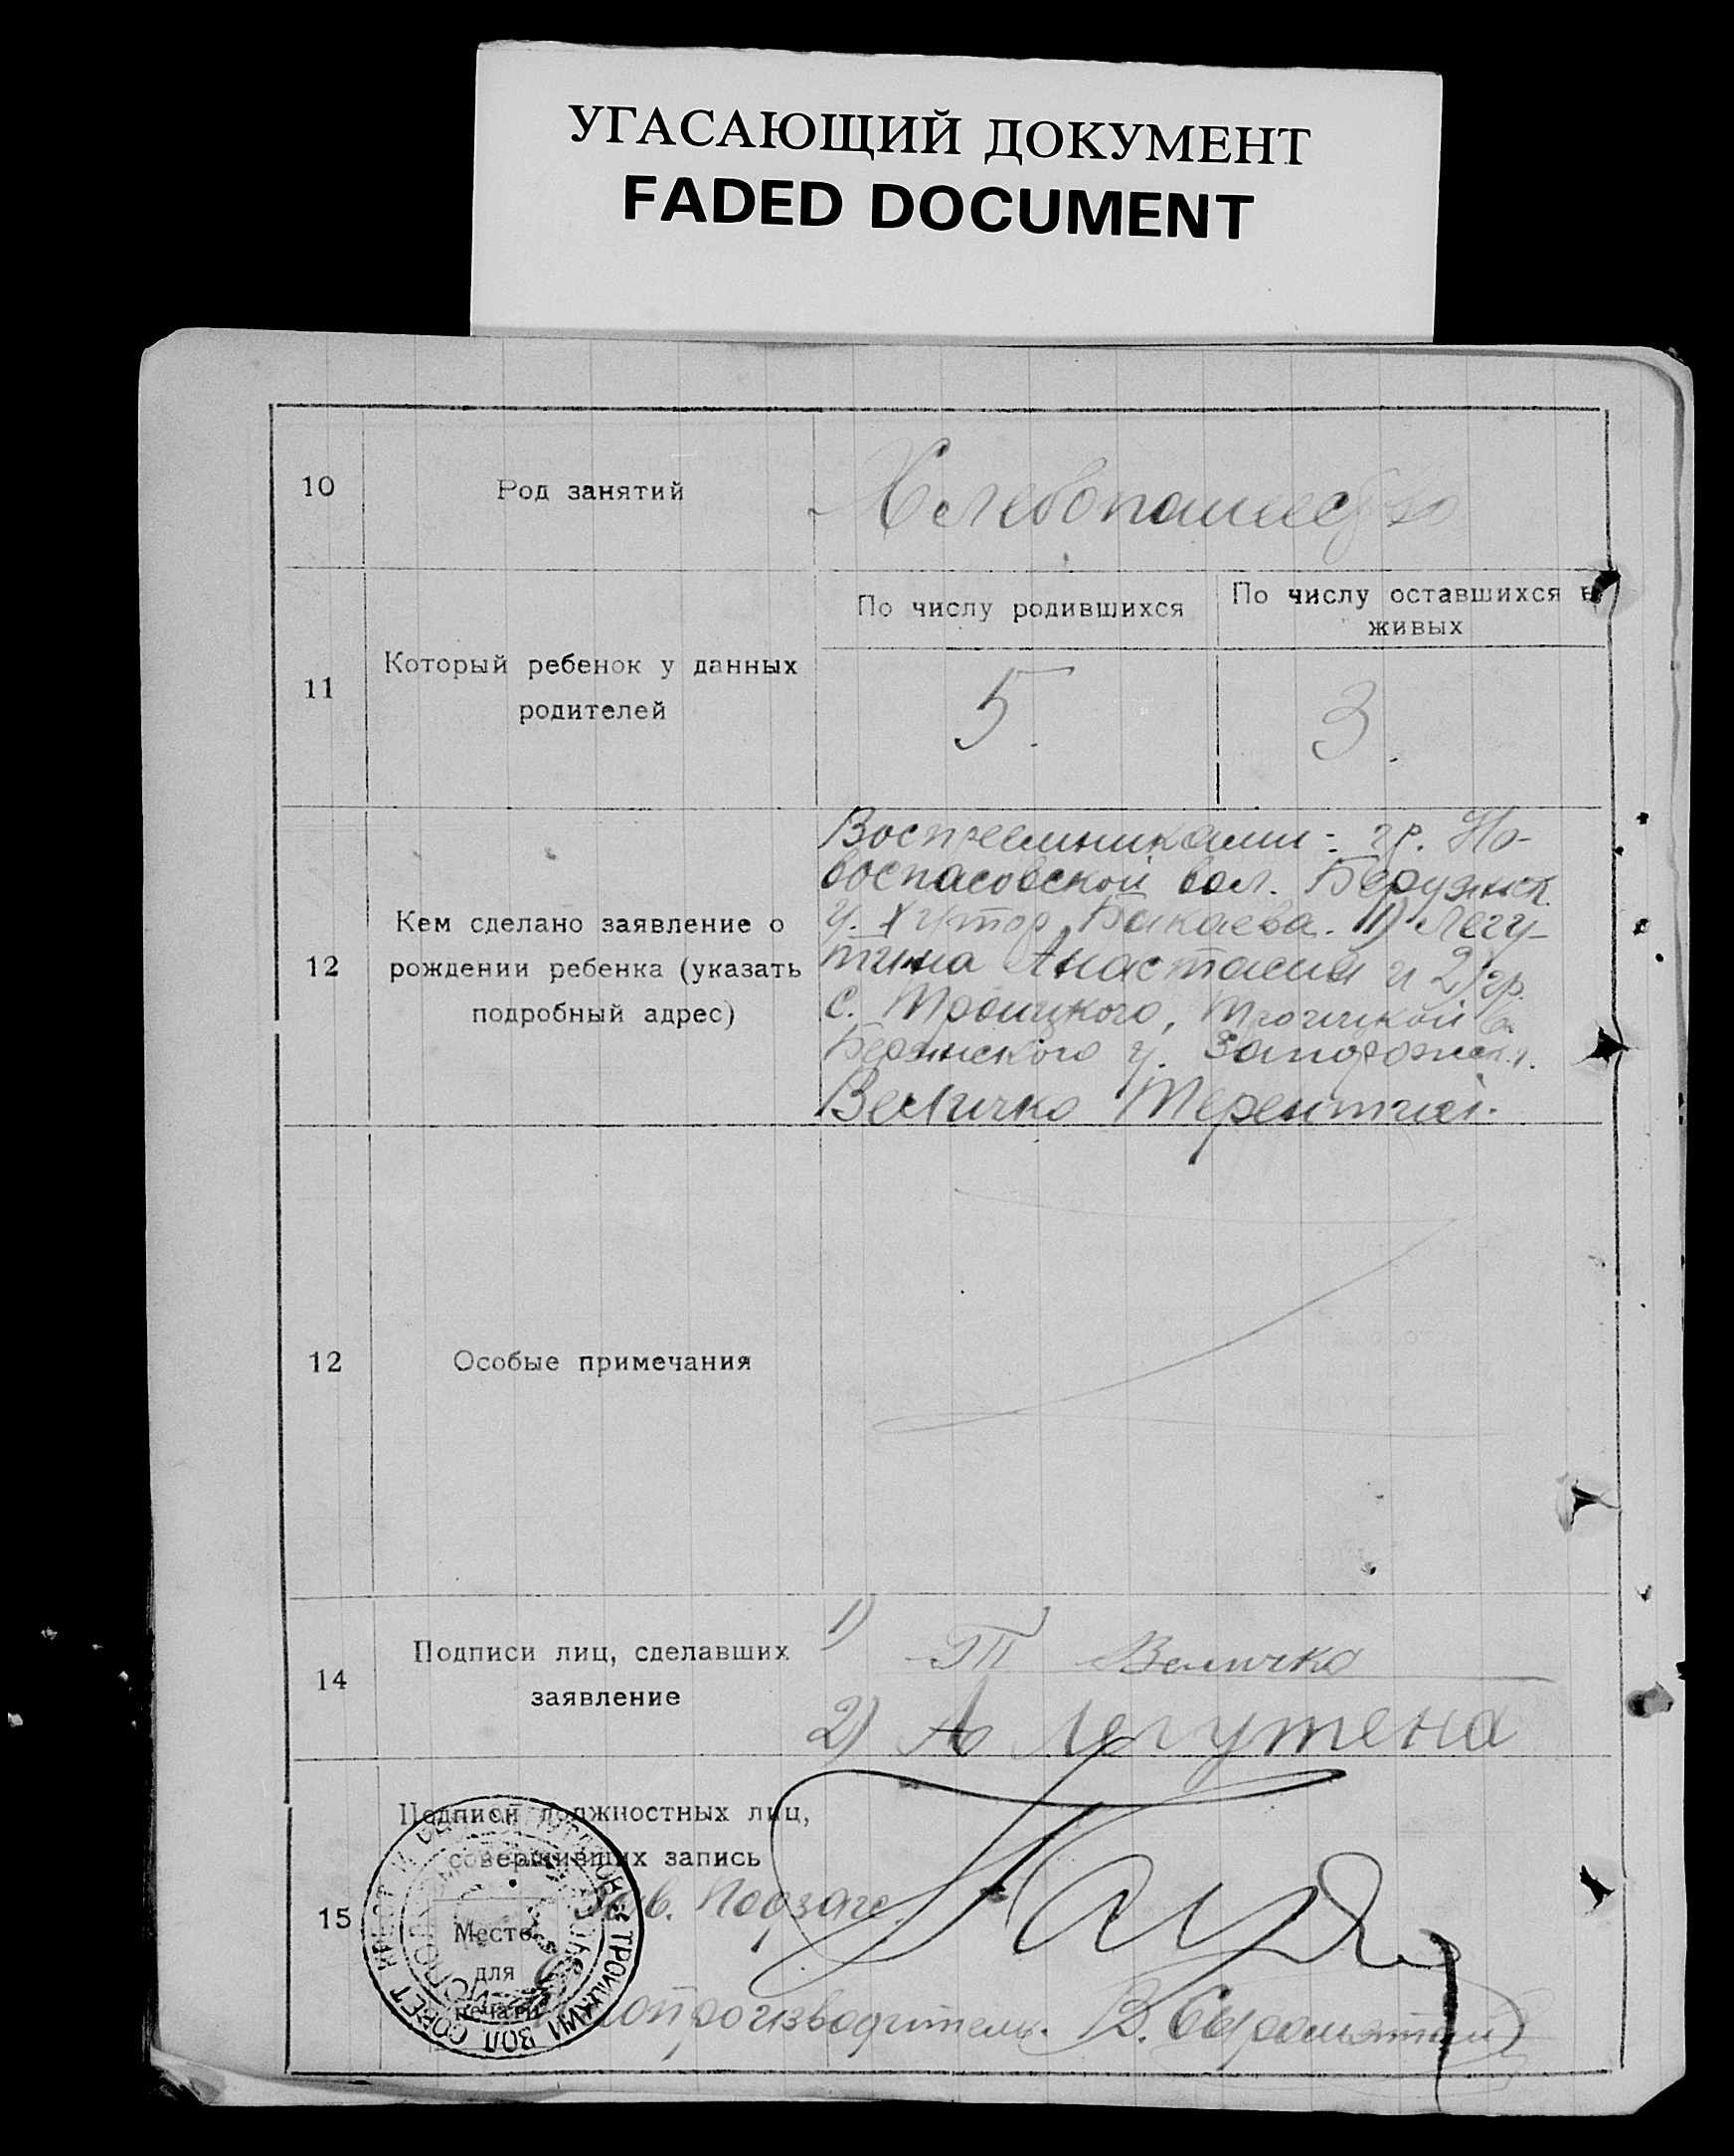 УГАСАЮЩИЙ ДОКУМЕНТ
FADED DOCUMENT
10
Род занятий
Хлебопашество
11
Который ребенок у данных
родителей
По числу родившихся
5.
По числу оставшихся в
живых
3.
12
Кем сделано заявление о
рождении ребенка (указать
подробный адрес)
Восприемниками: гр. Но-
воспасовской вол.
у. Хутор Бакаева. 1) Легу-
тина Анастасия и 2) гр.
с. Троицкого, Троицкой в.
у.
Величко Терентий.
12
Особые примечания
14
Подписи лиц, сделавших
заявление
1) Т Величко
2) А Легутена
15
Подписи должностных лиц,
совершивших запись
Зав. Подзагс
Место
для
печати
ТРОИЦКИЙ ВОЛ СОВЕТ
В.